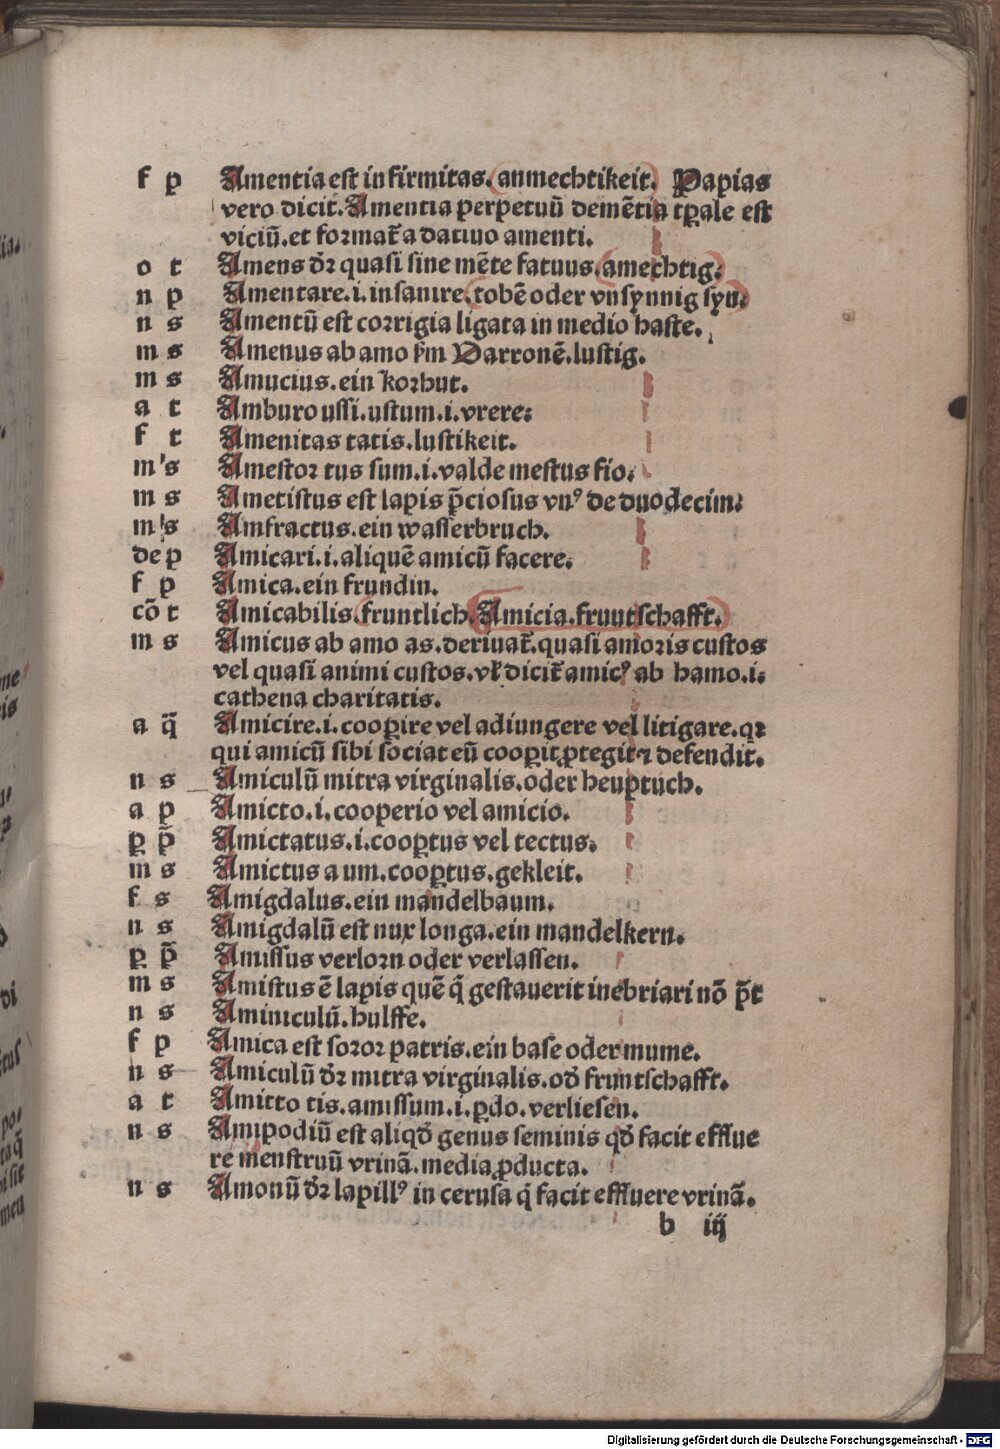 f p Amentia est infirmitas. anmechtikeit. Papias
vero dicit. Amentia perpetuū demētia tꝑale est
viciū. et formať a datiuo amenti.
o t Amens dr̄ quasi sine mēte fatuus. amechtig.
n p Amentare. i. insanire. tobē oder vnsynnig syn.
n s Amentū est corrigia ligata in medio haste.
m s Amenus ab amo ẜm Varronē. lustig.
m s Amucius. ein korhut.
a t Amburo ussi. ustum. i. vrere.
f t Amenitas tatis. lustikeit.
m s Amestor tus sum. i. valde mestus fio.
m s Ametistus est lapis p̄ciosus vnꝰ de duodecim.
m s Amfractus. ein wasserbruch.
de p Amicari. i. aliquē amicū facere.
f p Amica. ein frundin.
cō t Amicabilis. fruntlich. Amicia. fruntschafft.
m s Amicus ab amo as. deriuať. quasi amoris custos
vel quasi animi custos. vł diciť amicꝰ ab hamo. i.
cathena charitatis.
a q̄ Amicire. i. cooꝑire vel adiungere vel litigare. qꝛ
qui amicū sibi sociat eū cooꝑit ꝓtegit ⁊ defendit.
n s Amiculū mitra virginalis. oder heuptuch.
a p Amicto. i. cooperio vel amicio.
ꝑ p̄ Amictatus. i. cooꝑtus vel tectus.
m s Amictus a um. cooꝑtus. gekleit.
f s Amigdalus. ein mandelbaum.
n s Amigdalū est nux longa. ein mandelkern.
ꝑ p̄ Amissus verlorn oder verlassen.
m s Amistus ē lapis quē q̄ gestauerit inebriari nō p̄t
n s Aminiculū. hulffe.
f p Amica est soror patris. ein base oder mume.
n s Amiculū dr̄ mitra virginalis. od̄ fruntschafft.
a t Amitto tis. amissum. i. ꝑdo. verliesen.
n s Amipodiū est aliqd̄ genus seminis qd̄ facit efflue
re menstruū vrinā. media ꝓducta.
n s Amonū dr̄ lapillꝰ in cerusa q̄ facit effluere vrinā.
b iij
Digitalisierung gefördert durch die Deutsche Forschungsgemeinschaft - DFG